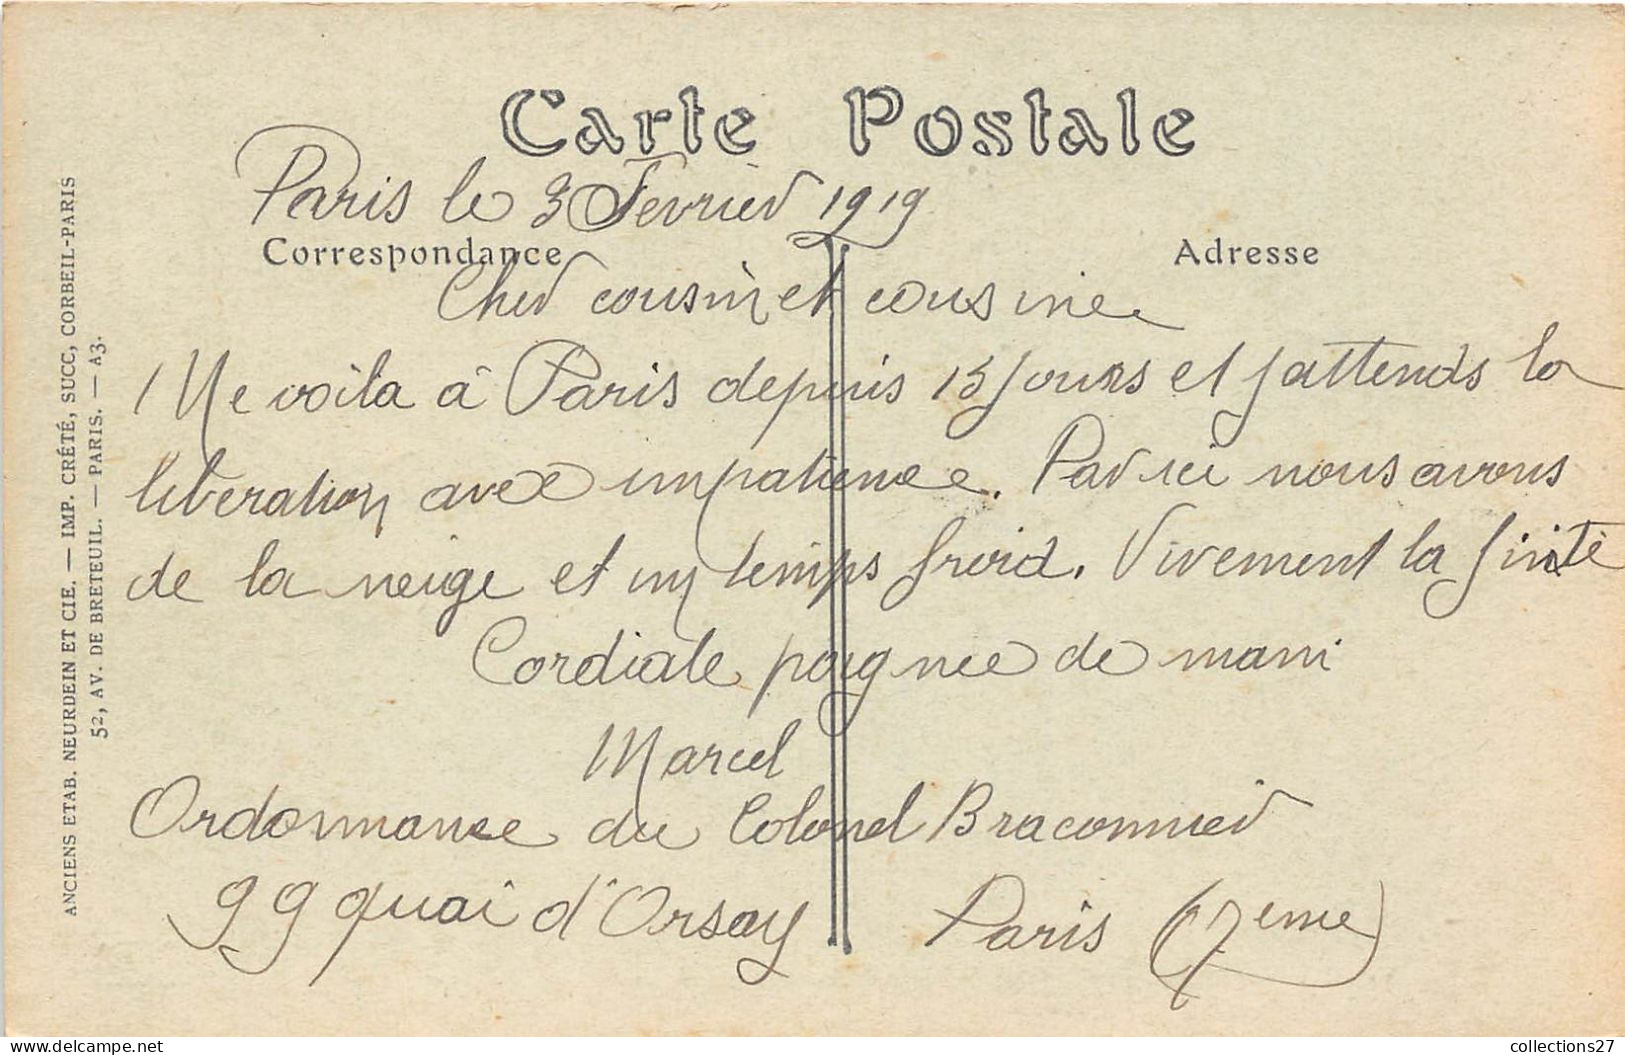 Carte Postale
Paris le 3 Fevrier 1919
Correspondance
Adresse
Cher cousin et cousine
Me voila à Paris depuis 15 jours et j'attends la
liberation avec impatience. Par ici nous avons
de la neige et un temps froid. Vivement la
Cordiale poignee de main
Marcel
Ordonnance du Colonel Braconnier
99 quai d'Orsay Paris (7eme)
ANCIENS ETAB. NEURDEIN ET CIE. — IMP. CRÉTÉ, SUCC, CORBEIL-PARIS
52, AV. DE BRETEUIL. — PARIS. — A3.
collections27